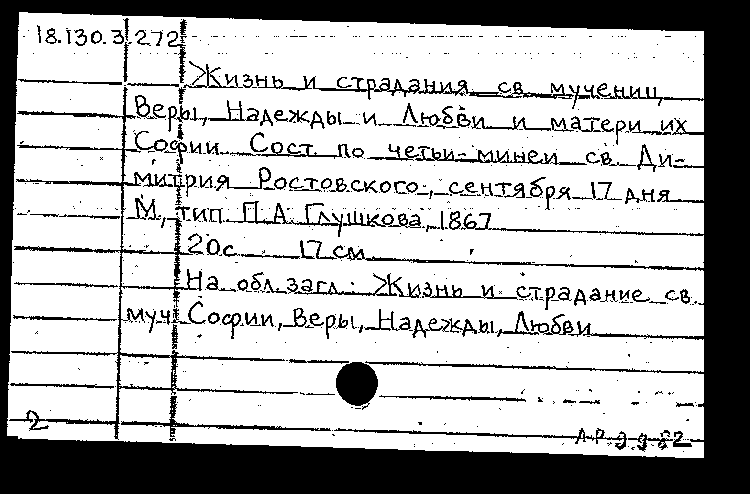 18.130.3.272
Жизнь и страдания св. мучениц
Веры, Надежды и Любви и матери их
Софии. Сост. по четьи-минеи св. Ди-
митрия Ростовского, сентября 17 дня.
М., тип. П.А. Глушкова, 1867
20с. 17 см.
На обл. загл.: Жизнь и страдание св.
муч. Софии, Веры, Надежды, Любви
2